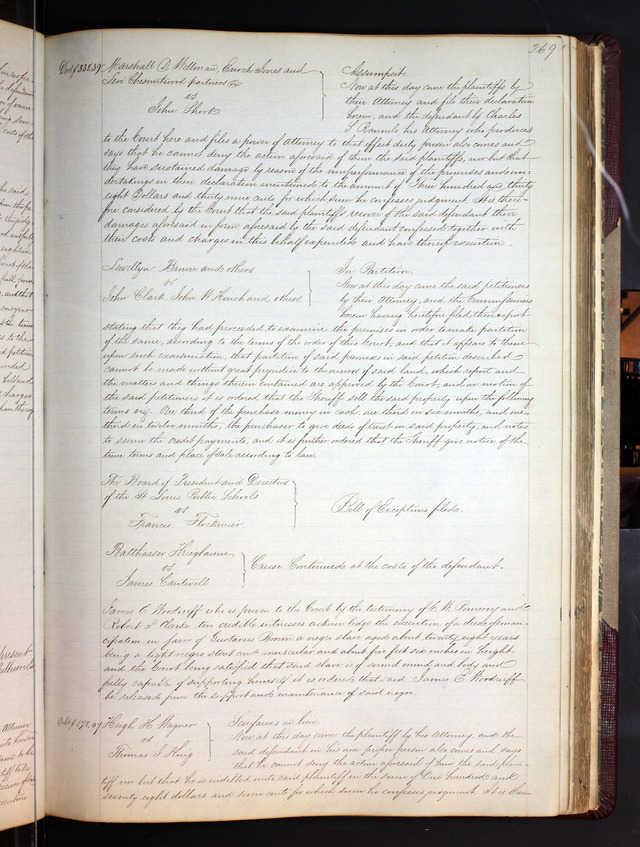 269
Debt $338.39 Marshall D. Wellman, Enoch Jones and
Levi Chesnutwood partners &c
vs
John Short
Assumpsit.
Now at this day come the plaintiffs by
their Attorney and file their declaration
herein, and the defendant by Charles
S Rannels his Attorney who produces
to the Court here and files a power of attorney to that effect duly proven also comes and
says that he cannot deny the action aforesaid of them the said plaintiffs, nor but that
they have sustained damage by reason of the nonperformance of the promises and un-
dertakings in their declaration mentioned to the amount of Three hundred and thirty
eight Dollars and thirty nine cents, for which sum he confesses judgment. It is there-
fore considered by the Court that the said plaintiffs recover of the said defendant their
damages aforesaid in form aforesaid by the said defendant confessed together with
their costs and charges in this behalf expended and have thereof execution.
Lewellyn Brown and others
vs
John Clark, John W Hinch and others
In Partition.
Now at this day come the said petitioners
by their Attorney, and the Commissioners
herein having heretofore filed their report
stating that they had proceeded to examine the premises in order to make partition
of the same, according to the terms of the order of this Court, and that it appears to them
upon such examination, that partition of said premises in said petition described
cannot be made without great prejudice to the owners of said land, which report and
the matters and things therein contained are approved by the Court, and on motion of
the said petitioners it is ordered that the Sheriff sell the said property upon the following
terms viz. One third of the purchase money in cash, one third in six months, and one
third in twelve months, the purchaser to give deeds of trust on said property, and notes
to secure the credit payments, and it is further ordered that the Sheriff give notice of the
time terms and place of sale according to law.
The Board of President and Directors
of the St Louis Public Schools
vs
Francis
Bill of Exceptions filed.
Balthasser
vs
James Cantwell
Cause Continued at the costs of the defendant.
James E Woodruff who is proven to the Court by the testimony of W Pomeroy and
Robert S Clarke two credible witnesses acknowledges the execution of a deed of eman-
cipation in favor of Gustavus Brown a negro slave aged about twenty eight years
being a light negro stout and muscular and about five feet six inches in height
and the Court being satisfied that said slave is of sound mind and body and
fully capable of supporting himself it is ordered that said James E Woodruff
be released from the support and maintenance of said negro.
Debt $178.07 Hugh H Wagner
vs
Thomas S King
Scirfacias in
Now at this day come the plaintiff by his Attorney and the
said defendant in his own proper person also comes and says
that he cannot deny the action aforesaid of him the said plain-
tiff nor but that he is indebted unto said plaintiff in the sum of One hundred and
seventy eight dollars and seven cents for which sum he confesses judgment. It is there-